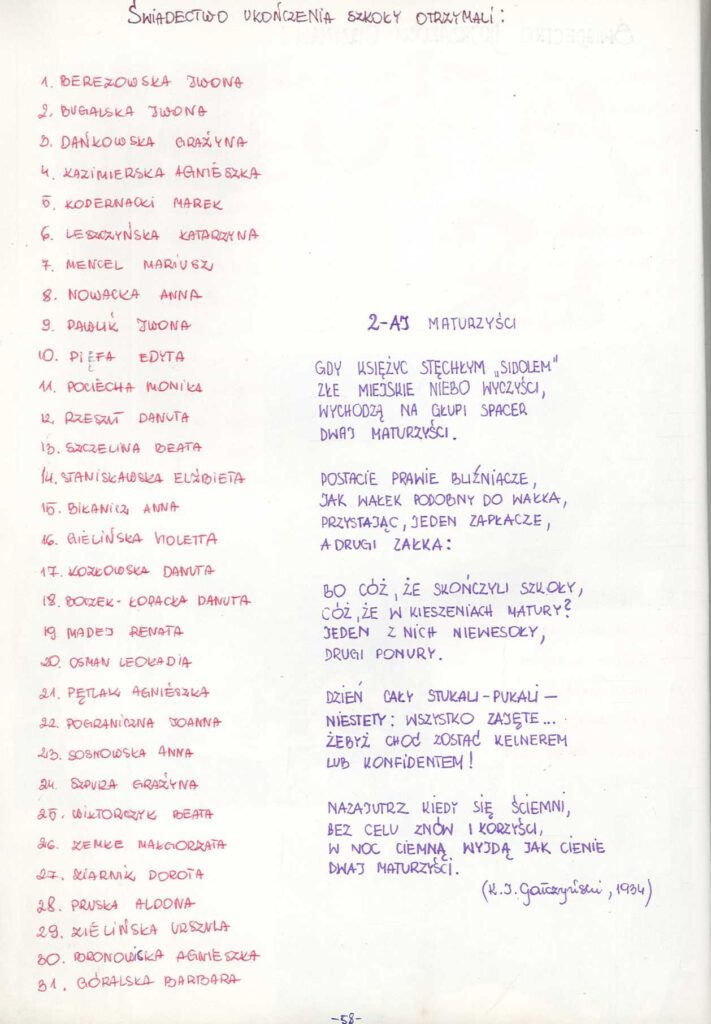 ŚWIADECTWO UKOŃCZENIA SZKOŁY OTRZYMALI:
1. BEREZOWSKA IWONA
2. BUGALSKA IWONA
3. DAŃKOWSKA GRAŻYNA
4. KAZIMIERSKA AGNIESZKA
5. KODERNACKI MAREK
6. LESZCZYŃSKA KATARZYNA
7. MENCEL MARIUSZ
8. NOWACKA ANNA
9. PAWLIK IWONA
10. EDYTA
11. POCIECHA MONIKA
12. RZESZUT DANUTA
13. SZCZELINA BEATA
14. STANISŁAWSKA ELŻBIETA
15. BIKANICZ ANNA
16. BIELIŃSKA VIOLETTA
17. KOZŁOWSKA DANUTA
18. BOCZEK-ŁOPACKA DANUTA
19. MADEJ RENATA
20. OSMAN LEOKADIA
21. PĘTLAK AGNIESZKA
22. POGRANICZNA JOANNA
23. SOSNOWSKA ANNA
24. SZPURA GRAŻYNA
25. WIKTORCZYK BEATA
26. ZEMKE MAŁGORZATA
27. ŻIARNIK DOROTA
28. PRUSKA ALDONA
29. ZIELIŃSKA URSZULA
30. BRONOWICKA AGNIESZKA
31. GÓRALSKA BARBARA
2-AJ MATURZYŚCI
GDY KSIĘŻYC STĘCHŁYM „SIDOLEM"
ZŁE MIEJSKIE NIEBO WYCZYŚCI,
WYCHODZĄ NA GŁUPI SPACER
DWAJ MATURZYŚCI.
POSTACIE PRAWIE BLIŹNIACZE,
JAK WAŁEK PODOBNY DO WAŁKA,
PRZYSTAJĄC, JEDEN ZAPŁACZE,
A DRUGI ZAŁKA:
BO CÓŻ, ŻE SKOŃCZYLI SZKOŁY,
CÓŻ, ŻE W KIESZENIACH MATURY?
JEDEN Z NICH NIEWESOŁY,
DRUGI PONURY.
DZIEŃ CAŁY STUKALI-PUKALI —
NIESTETY: WSZYSTKO ZAJĘTE...
ŻEBYŻ CHOĆ ZOSTAĆ KELNEREM
LUB KONFIDENTEM!
NAZAJUTRZ KIEDY SIĘ ŚCIEMNI,
BEZ CELU ZNÓW I KORZYŚCI,
W NOC CIEMNĄ WYJDĄ JAK CIENIE
DWAJ MATURZYŚCI.
(K.I. Gałczyński, 1934)
-58-